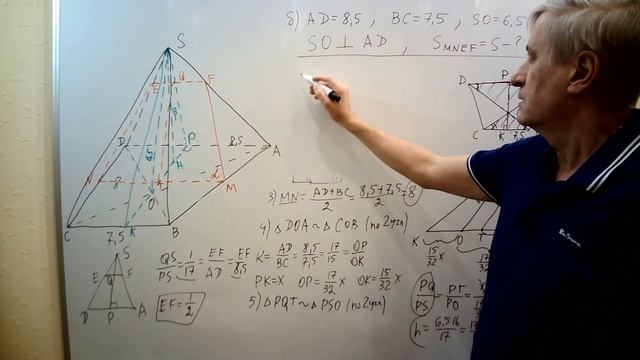 δ) AD = 8,5 ; BC = 7,5 ; SO = 6,5
SO ⊥ AD ; S_MNEF = S - ?
S
E Q F
D P 8,5 A
H
N 8 M
O
C 7,5 K B
3) MN = (AD+BC)/2 = (8,5+7,5)/2 = 8
4) △DOA ~ △COB (по 2угл)
K = AD/BC = 8,5/7,5 = 17/15 = OP/OK
PK = X OP = 17/32 X OK = 15/32 X
5) △PQT ~ △PSO (по 2угл)
S
E Q F
D P A
QS/PS = 1/17 = EF/AD = EF/8,5
EF = 1/2
D P
C K 7,5
K O T
15/32 X 17/32
PQ/PS = PT/PO =
h = 6,5·16/17 =